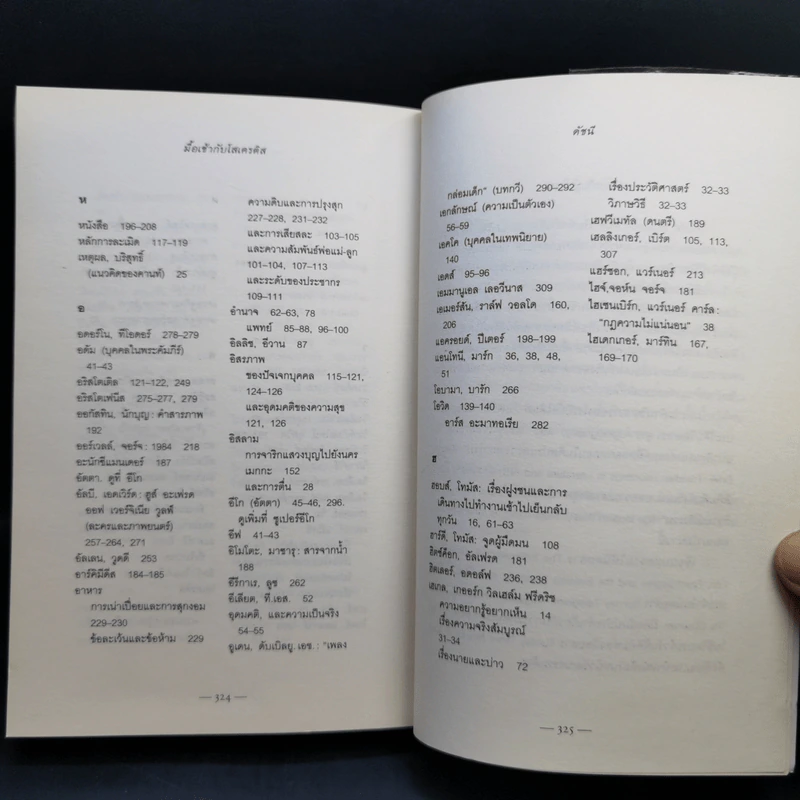 มื้อเช้ากับโสเครติส
ห
หนังสือ 196-208
หลักการละเมิด 117-119
เหตุผล, บริสุทธิ์
(แนวคิดของคานท์) 25
อ
อดอร์โน, ทีโอดอร์ 278-279
อดัม (บุคคลในพระคัมภีร์)
41-43
อริสโตเติล 121-122, 249
อริสโตเฟนีส 275-277, 279
ออกัสทีน, นักบุญ: คำสารภาพ
192
ออร์เวลล์, จอร์จ: 1984 218
อะนักซีแมนเดอร์ 187
อัตตา. ดูที่ อีโก
อัลบี, เอดเวิร์ด: ฮูส์ อะเฟรด
ออฟ เวอร์จิเนีย วูลฟ์
(ละครและภาพยนตร์)
257-264, 271
อัลเลน, วูดดี้ 253
อาร์คิมีดีส 184-185
อาหาร
การเน่าเปื่อยและการสุกงอม
229-230
ข้อละเว้นและข้อห้าม 229
ความดิบและการปรุงสุก
227-228, 231-232
และการเสียสละ 103-105
และความสัมพันธ์พ่อแม่-ลูก
101-104, 107-113
และระดับของประชากร
109-111
อำนาจ 62-63, 78
แพทย์ 85-88, 96-100
อิลลิช, อีวาน 87
อิสรภาพ
ของปัจเจกบุคคล 115-121,
124-126
และอุดมคติของความสุข
121, 126
อิสลาม
การจาริกแสวงบุญไปยังนคร
เมกกะ 152
และการตื่น 28
อีโก (อัตตา) 45-46, 296.
ดูเพิ่มที่ ซูเปอร์อีโก
อีฟ 41-43
อิโมโตะ, มาซารุ: สารจากน้ำ
188
อีรีกาเร, ลูซ 262
อีเลียต, ที.เอส. 52
อุดมคติ, และความเป็นจริง
54-55
อูเดน, ดับเบิลยู.เอช.: "เพลง
— 324 —
ดัชนี
กล่อมเด็ก" (บทกวี) 290-292
เอกลักษณ์ (ความเป็นตัวเอง)
56-59
เอคโค (บุคคลในเทพนิยาย)
140
เอดส์ 95-96
เอมมานูเอล เลอวีนาส 309
เอเมอร์สัน, ราล์ฟ วอลโด 160,
206
แอครอยด์, ปีเตอร์ 198-199
แอนโทนี, มาร์ก 36, 38, 48,
51
โอบามา, บารัก 266
โอวิด 139-140
อาร์ส อะมาทอเรีย 282
ฮ
ฮอบส์, โทมัส: เรื่องฝูงชนและการ
เดินทางไปทำงานเช้าไปเย็นกลับ
ทุกวัน 16, 61-63
ฮาร์ดี, โทมัส: จูดผู้มืดมน 108
ฮิตช์ค็อก, อัลเฟรด 181
ฮิตเลอร์, อดอล์ฟ 236, 238
เฮเกล, เกออร์ก วิลเฮล์ม ฟรีดริช
ความอยากรู้อยากเห็น 14
เรื่องความจริงสัมบูรณ์
31-34
เรื่องนายและบ่าว 72
เรื่องประวัติศาสตร์ 32-33
วิภาษวิธี 32-33
เฮฟวีเมทัล (ดนตรี) 189
เฮลลิงเกอร์, เบิร์ต 105, 113,
307
แฮร์ซอก, แวร์เนอร์ 213
ไฮจ์,จอห์น จอร์จ 181
ไฮเซนเบิร์ก, แวร์เนอร์ คาร์ล:
"กฎความไม่แน่นอน" 38
ไฮเดกเกอร์, มาร์ทิน 167,
169-170
— 325 —